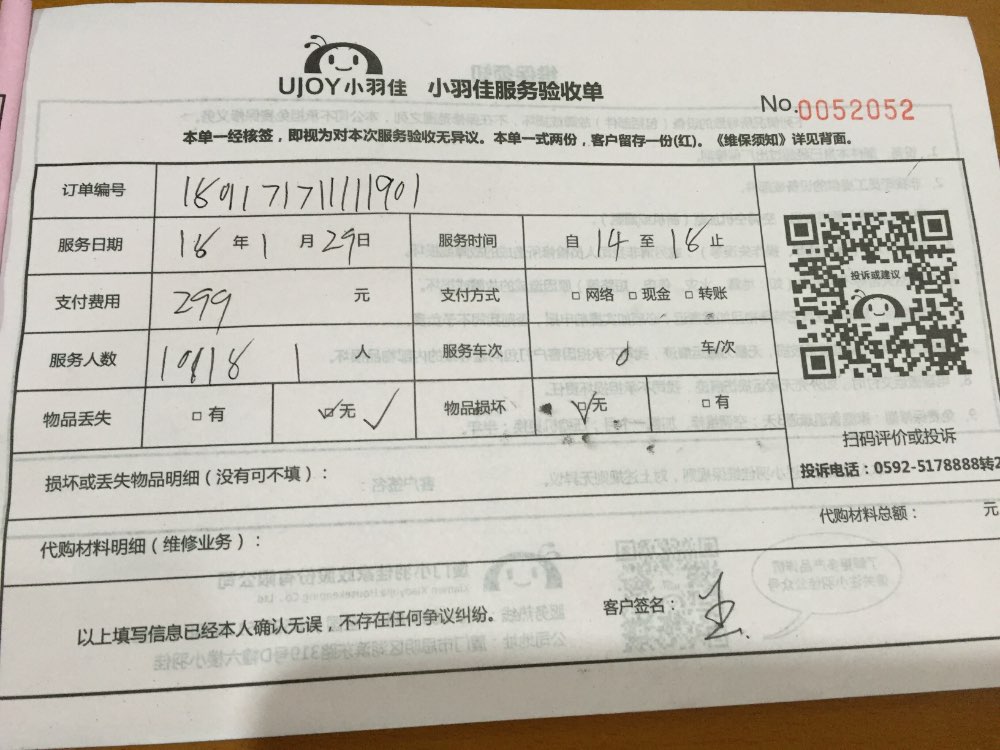 UJOY小羽佳 小羽佳服务验收单
No.0052052
本单一经核签，即视为对本次服务验收无异议。本单一式两份，客户留存一份(红)。《维保须知》详见背面。
订单编号 180171711111901
服务日期 18 年 1 月 29 日 服务时间 自 14 至 18 止
支付费用 299 元 支付方式 □ 网络 □ 现金 □ 转账
服务人数 10818 1 人 服务车次 0 车/次
物品丢失 □ 有 □ 无 ✓ 物品损坏 □ 无 □ 有
投诉或建议
扫码评价或投诉
投诉电话：0592-5178888转2
损坏或丢失物品明细（没有可不填）：
代购材料明细（维修业务）： 代购材料总额： 元
以上填写信息已经本人确认无误，不存在任何争议纠纷。 客户签名：